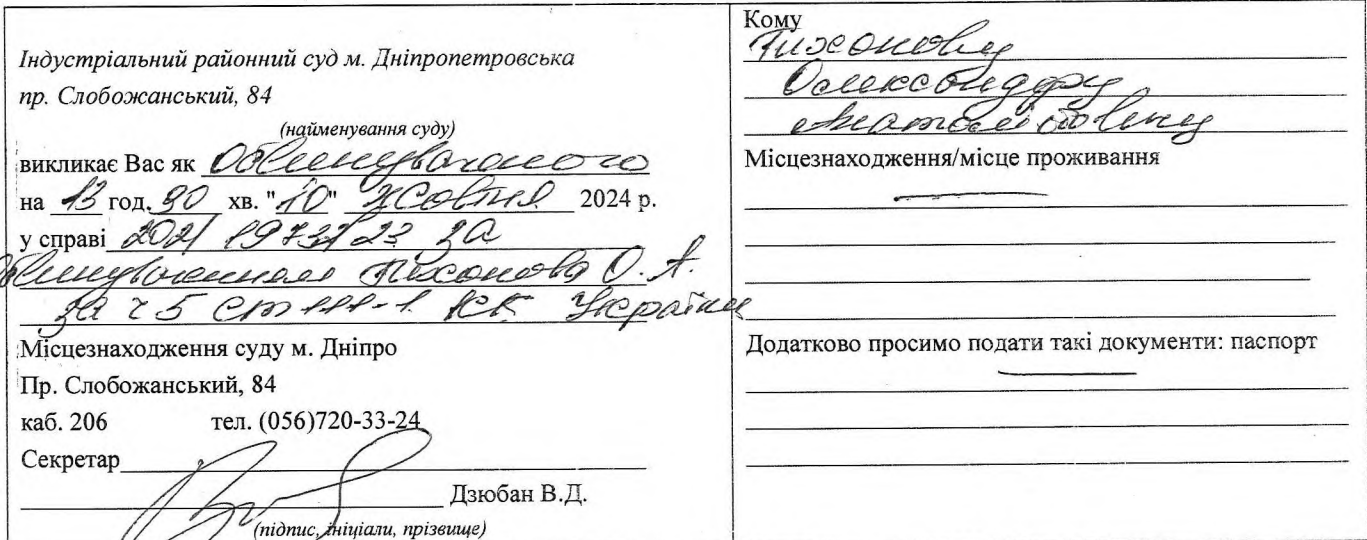 Індустріальний районний суд м. Дніпропетровська
пр. Слобожанський, 84
(найменування суду)
викликає Вас як Обвинуваченого
на 13 год. 30 хв. "10" жовтня 2024 р.
у справі 202/19737/23 за
обвинуваченням Тихонова О. А.
за ч 5 ст 111-1. КК України
Місцезнаходження суду м. Дніпро
Пр. Слобожанський, 84
каб. 206 тел. (056)720-33-24
Секретар
Дзюбан В.Д.
(підпис, ініціали, прізвище)
Кому
Тихонову
Олександру
Анатолійовичу
Місцезнаходження/місце проживання
Додатково просимо подати такі документи: паспорт